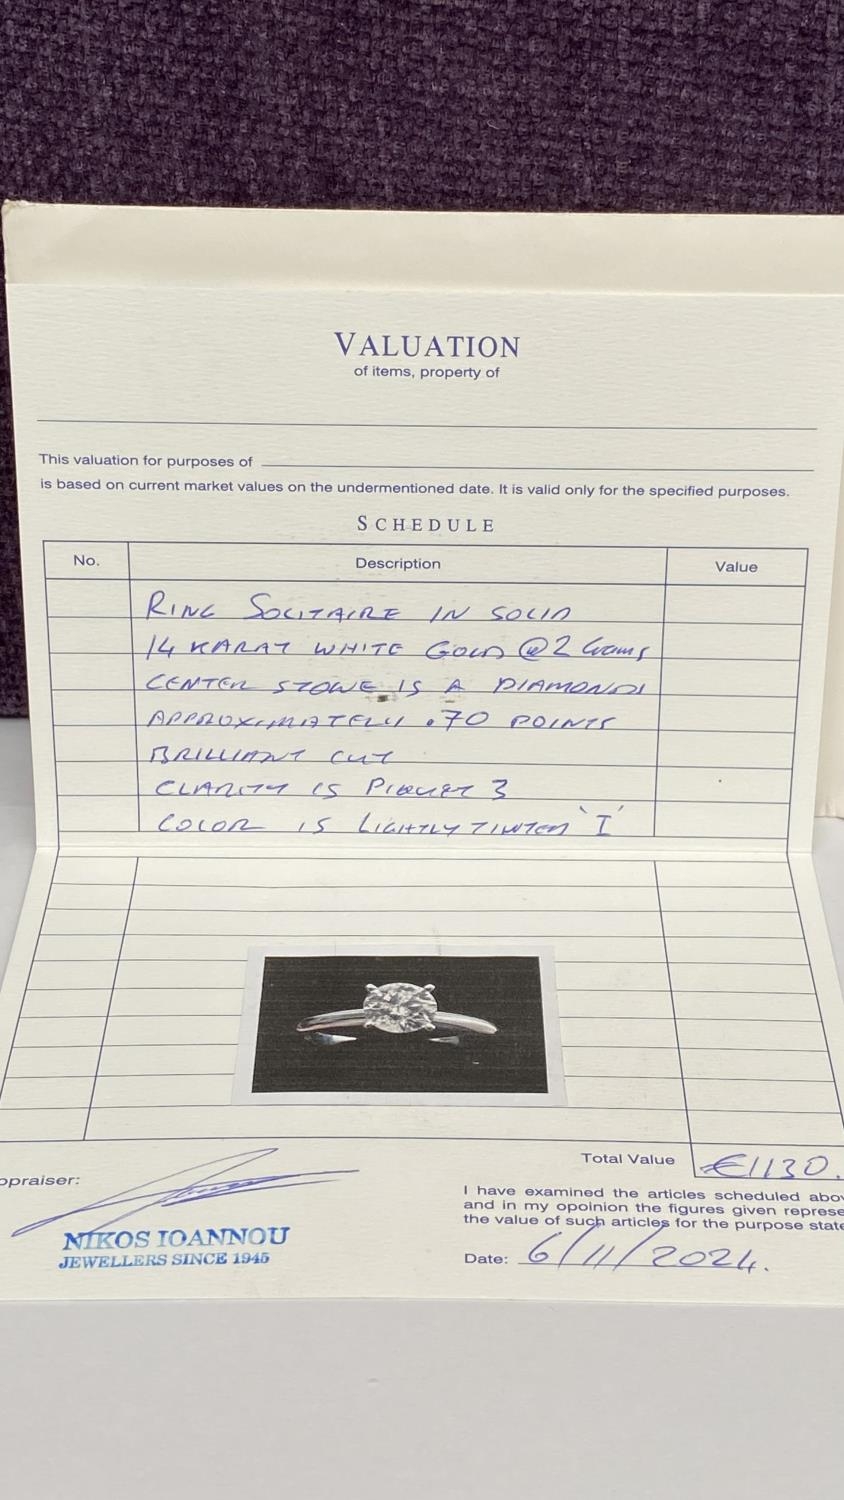 VALUATION
of items, property of
This valuation for purposes of
is based on current market values on the undermentioned date. It is valid only for the specified purposes.
SCHEDULE
No. Description Value
RING SOLITAIRE IN SOLID
14 KARAT WHITE GOLD @ 2 Grams
CENTER STONE IS A DIAMOND
APPROXIMATELY .70 POINTS
BRILLIANT CUT
CLARITY IS PIQUET 3
COLOR IS LIGHTLY TINTED 'I'
Total Value €1130.
ppraiser:
I have examined the articles scheduled abov
and in my opoinion the figures given represe
the value of such articles for the purpose state
NIKOS IOANNOU
JEWELLERS SINCE 1945
Date: 6/11/2024.